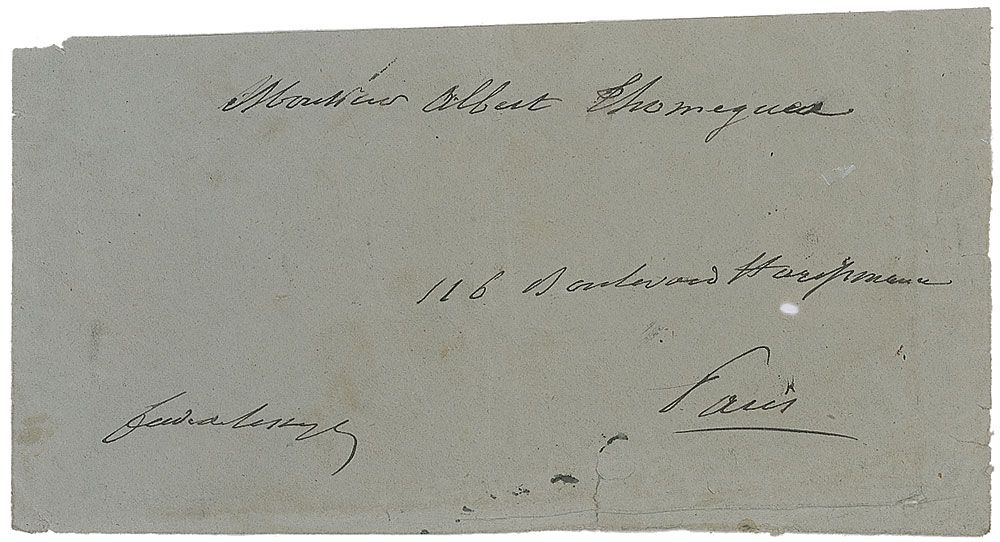 Monsieur Albert Thomeguex
116 Boulevard Haussmann
Paris